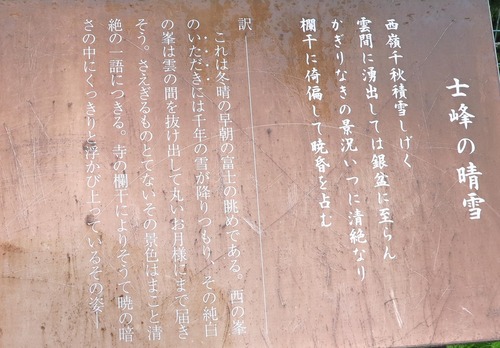 士峰の晴雪
西嶺千秋積雪しげく
雲間に湧出しては銀盆に至らん
かぎりなきの景況いつに清絶なり
欄干に倚偏して暁昏を占む
訳
これは冬晴の早朝の富士の眺めである。西の峯
のいただきには千年の雪が降りつもり、その純白
の峯は雲の間を抜け出して丸いお月様にまで届き
そう。さえぎるものとてないその景色はまこと清
絶の一語につきる。寺の欄干によりそうて暁の暗
さの中にくっきりと浮かび上っているその姿―